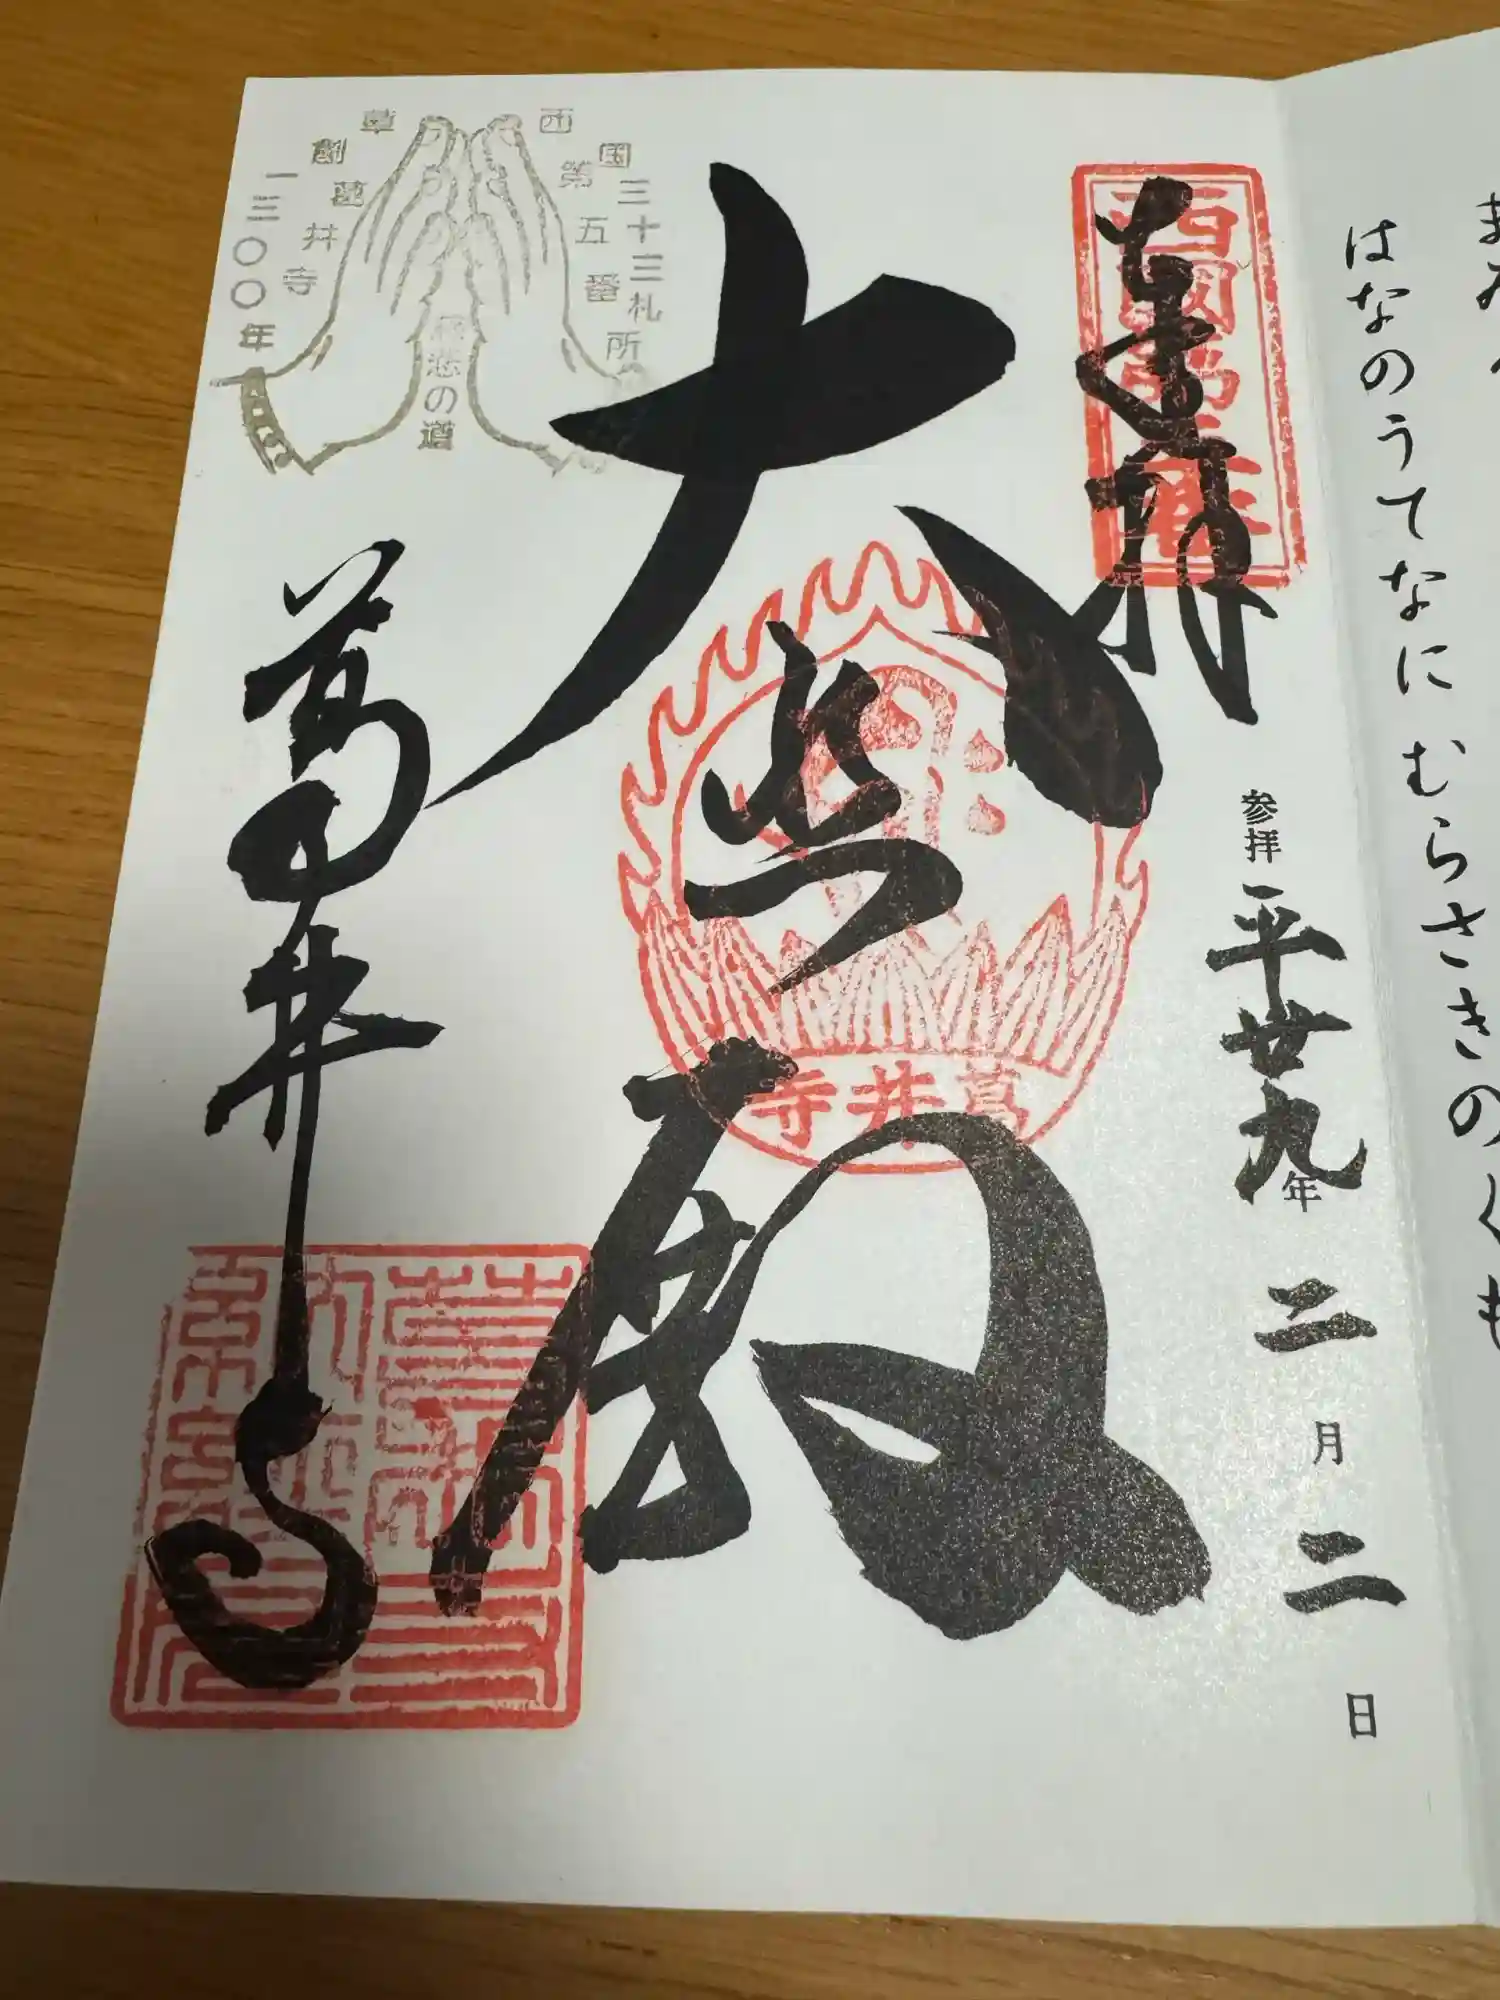 はなのうてなに むらさきのくも
奉拝
西國第五番
参拝 平廿九年 二月二日
大悲殿
葛井寺
葛井寺
西国三十三札所
第五番
慈悲の道
草創
葛井寺
一三〇〇年